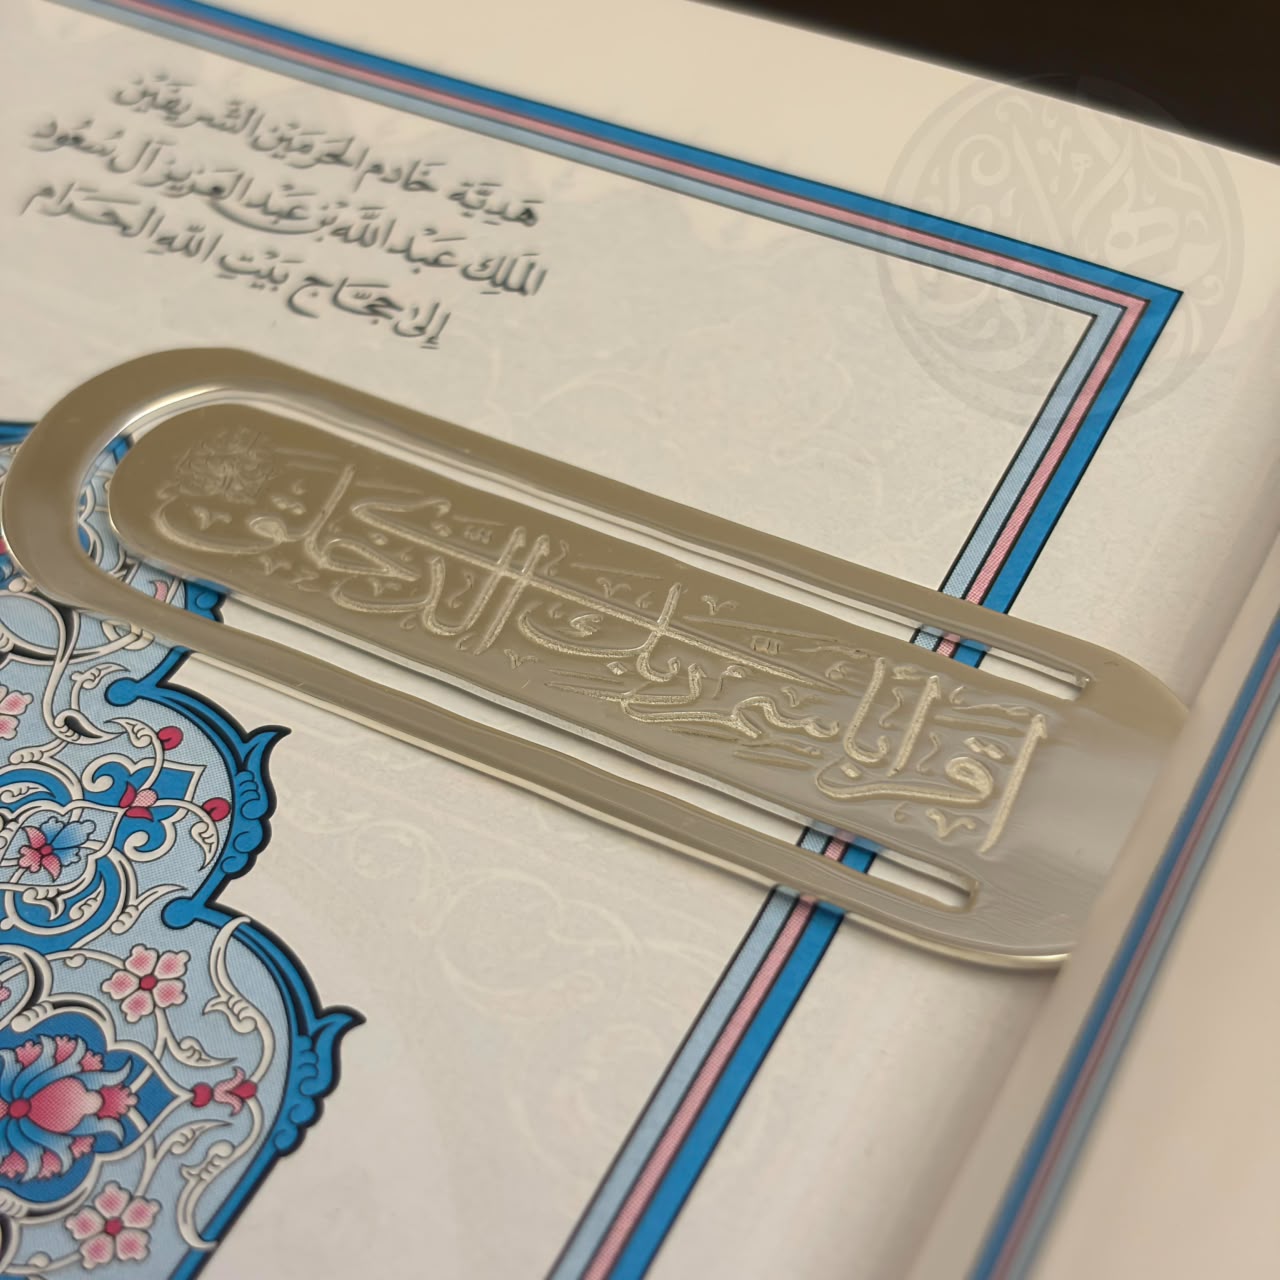 هَدِيَّة خَادم الحَرَمَيْن الشَّريفَيْن
المَلِك عَبْد اللَّه بْن عَبْد العَزيز آل سُعُود
إلى حجَّاج بَيْتِ اللَّهِ الحَرَام
اقرأ باسم ربك الذي خلق